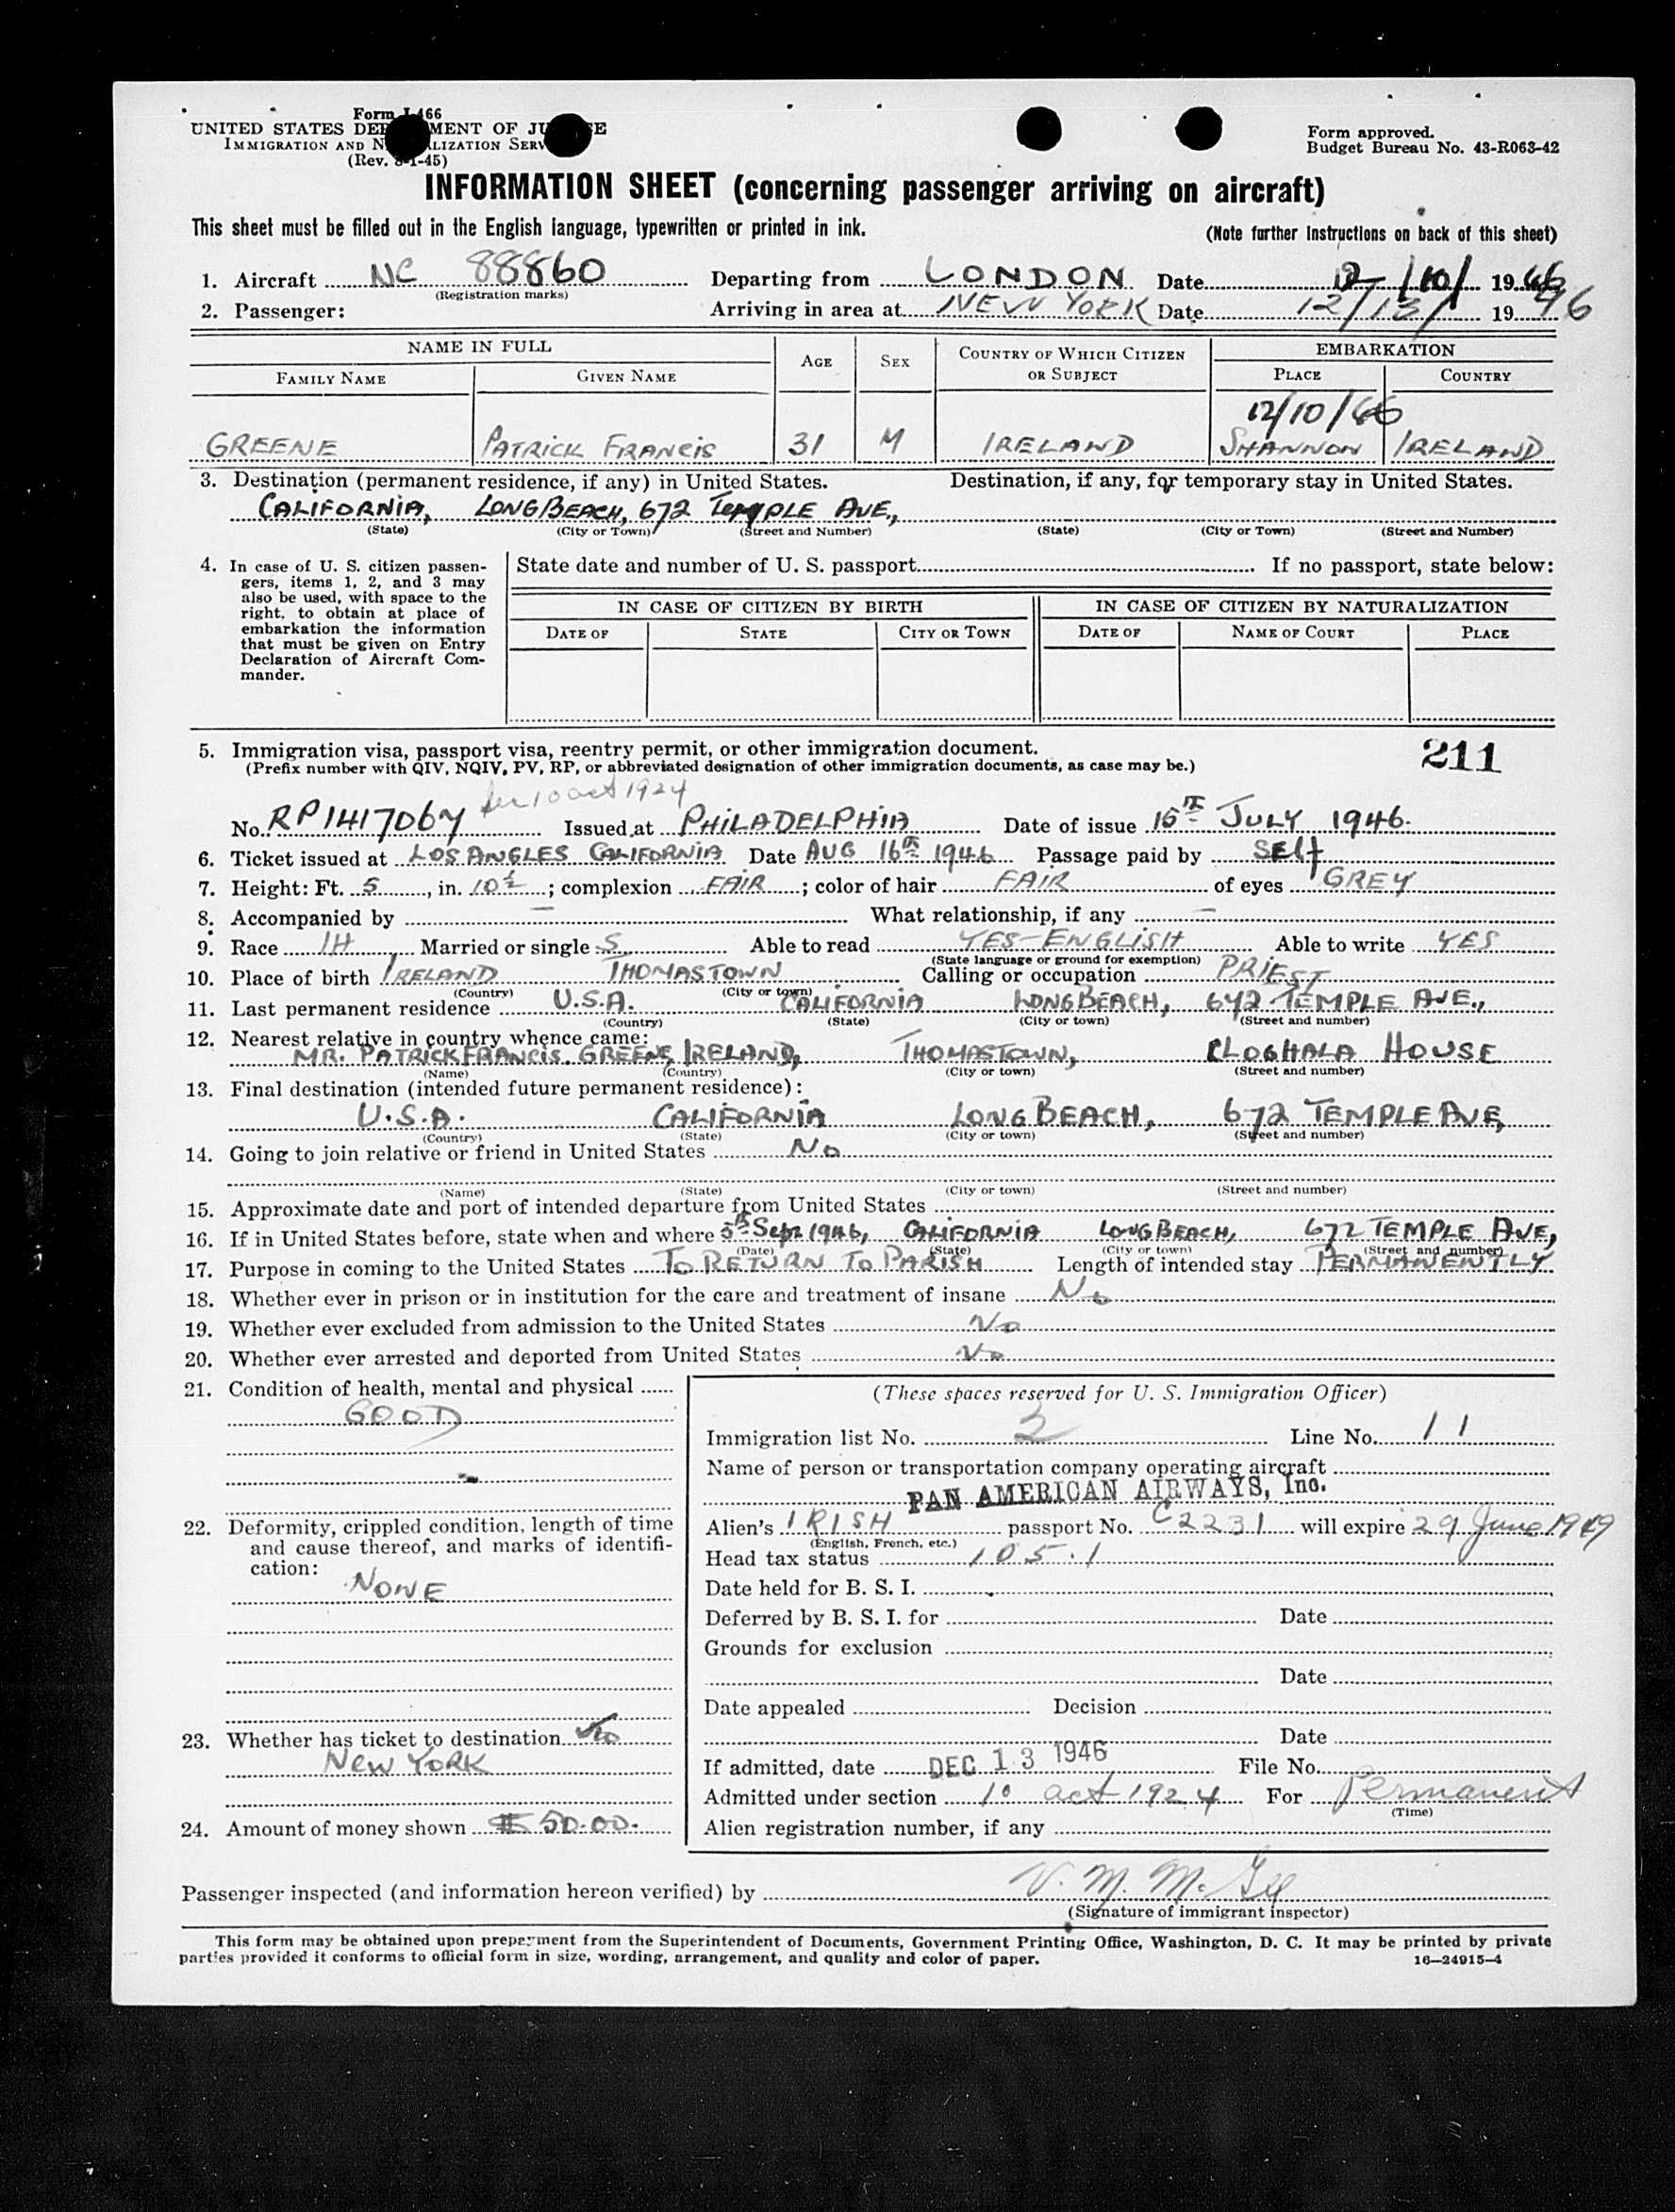 Form I-466
UNITED STATES DEPARTMENT OF JUSTICE
IMMIGRATION AND NATURALIZATION SERV
(Rev. 8-1-45)
Form approved.
Budget Bureau No. 43-R063-42
INFORMATION SHEET (concerning passenger arriving on aircraft)
This sheet must be filled out in the English language, typewritten or printed in ink.
(Note further instructions on back of this sheet)
1. Aircraft NC 88860 Departing from LONDON Date 12/10/ 1946
(Registration marks)
2. Passenger: Arriving in area at NEW YORK Date 12/13/ 1946
NAME IN FULL AGE SEX COUNTRY OF WHICH CITIZEN OR SUBJECT EMBARKATION
FAMILY NAME GIVEN NAME PLACE COUNTRY
12/10/46
GREENE PATRICK FRANCIS 31 M IRELAND SHANNON IRELAND
3. Destination (permanent residence, if any) in United States. Destination, if any, for temporary stay in United States.
CALIFORNIA, LONG BEACH, 672 TEMPLE AVE.,
(State) (City or Town) (Street and Number) (State) (City or Town) (Street and Number)
4. In case of U. S. citizen passen-
gers, items 1, 2, and 3 may
also be used, with space to the
right, to obtain at place of
embarkation the information
that must be given on Entry
Declaration of Aircraft Com-
mander.
State date and number of U. S. passport If no passport, state below:
IN CASE OF CITIZEN BY BIRTH IN CASE OF CITIZEN BY NATURALIZATION
DATE OF STATE CITY OR TOWN DATE OF NAME OF COURT PLACE
5. Immigration visa, passport visa, reentry permit, or other immigration document. 211
(Prefix number with QIV, NQIV, PV, RP, or abbreviated designation of other immigration documents, as case may be.)
10 act 1924
No. RP 1417067 Issued at PHILADELPHIA Date of issue 15TH JULY 1946.
6. Ticket issued at LOS ANGLES CALIFORNIA Date AUG 16th 1946 Passage paid by SELF
7. Height: Ft. 5, in. 10½; complexion FAIR; color of hair FAIR of eyes GREY
8. Accompanied by — What relationship, if any —
9. Race IH Married or single S Able to read YES-ENGLISH Able to write YES
(State language or ground for exemption)
10. Place of birth IRELAND THOMASTOWN Calling or occupation PRIEST
(Country) (City or town)
11. Last permanent residence U.S.A. CALIFORNIA LONG BEACH, 672 TEMPLE AVE.,
(Country) (State) (City or town) (Street and number)
12. Nearest relative in country whence came:
MR. PATRICK FRANCIS GREENE, IRELAND, THOMASTOWN, CLOGHALA HOUSE
(Name) (Country) (City or town) (Street and number)
13. Final destination (intended future permanent residence):
U.S.A. CALIFORNIA LONG BEACH, 672 TEMPLE AVE,
(Country) (State) (City or town) (Street and number)
14. Going to join relative or friend in United States No
(Name) (State) (City or town) (Street and number)
15. Approximate date and port of intended departure from United States
16. If in United States before, state when and where 5th Sept 1946, CALIFORNIA LONG BEACH, 672 TEMPLE AVE,
(Date) (State) (City or town) (Street and number)
17. Purpose in coming to the United States TO RETURN TO PARISH Length of intended stay PERMANENTLY
18. Whether ever in prison or in institution for the care and treatment of insane No
19. Whether ever excluded from admission to the United States No
20. Whether ever arrested and deported from United States No
21. Condition of health, mental and physical
GOOD
22. Deformity, crippled condition, length of time
and cause thereof, and marks of identifi-
cation:
NONE
23. Whether has ticket to destination
NEW YORK
24. Amount of money shown $ 50.00.
(These spaces reserved for U. S. Immigration Officer)
Immigration list No. 3 Line No. 11
Name of person or transportation company operating aircraft
PAN AMERICAN AIRWAYS, Inc.
Alien's IRISH passport No. C2231 will expire 29 June 1949
(English, French, etc.)
Head tax status 105.1
Date held for B. S. I.
Deferred by B. S. I. for Date
Grounds for exclusion
Date
Date appealed Decision
Date
If admitted, date DEC 13 1946 File No.
Admitted under section 10 act 1924 For Permanent
(Time)
Alien registration number, if any
Passenger inspected (and information hereon verified) by V. M. McGee
(Signature of immigrant inspector)
This form may be obtained upon prepayment from the Superintendent of Documents, Government Printing Office, Washington, D. C. It may be printed by private
parties provided it conforms to official form in size, wording, arrangement, and quality and color of paper. 16—24915-4